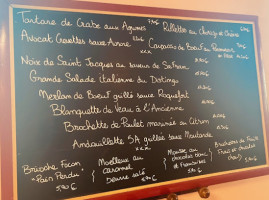 Tartare de Crabe aux Agrumes
Rillettes au chorizo et
Avocat Crevettes sauce Aurore
Carpaccio de Boeuf au Parmesan
Noix de Saint Jacques au saveur de Safran
Grande Salade italienne du Dotingo
Merlan de Boeuf grillé sauce Roquefort
Blanquette de Veau à l'Ancienne
Brochette de Poulet marinée au Citron
Andouillette 5A grillée sauce Moutarde
Brioche Façon
"Pain Perdu"
Moelleux au
caramel
beurre salé
Mousse au
chocolat blanc
et Framboise
Brochettes de Fruits
Frais et chocolat
chaud